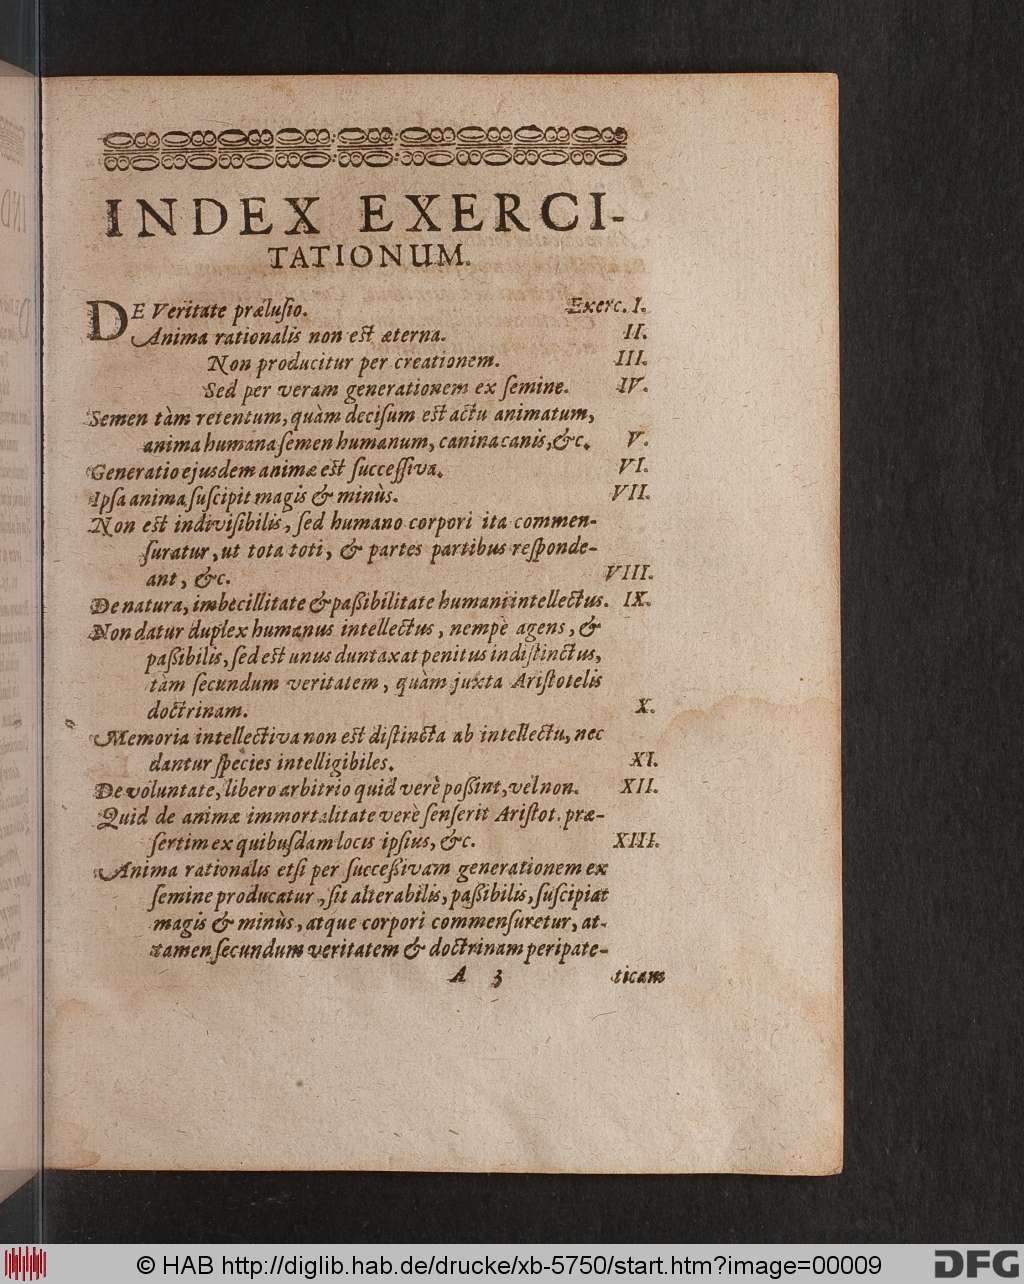 INDEX EXERCI-
TATIONUM.
DE Veritate prælusio. Exerc. I.
Anima rationalis non est æterna. II.
Non producitur per creationem. III.
Sed per veram generationem ex semine. IV.
Semen tàm retentum, quàm decisum est actu animatum,
anima humana semen humanum, canina canis, &c. V.
Generatio ejusdem animæ est successiva. VI.
Ipsa anima suscipit magis & minùs. VII.
Non est indivisibilis, sed humano corpori ita commen-
suratur, ut tota toti, & partes partibus responde-
ant, &c. VIII.
De natura, imbecillitate & passibilitate humani intellectus. IX.
Non datur duplex humanus intellectus, nempè agens, &
passibilis, sed est unus duntaxat penitus indistinctus,
tàm secundum veritatem, quàm juxta Aristotelis
doctrinam. X.
Memoria intellectiva non est distincta ab intellectu, nec
dantur species intelligibiles. XI.
De voluntate, libero arbitrio quid verè possint, vel non. XII.
Quid de animæ immortalitate verè senserit Aristot. præ-
sertim ex quibusdam locis ipsius, &c. XIII.
Anima rationalis etsi per successivam generationem ex
semine producatur, sit alterabilis, passibilis, suscipiat
magis & minùs, atque corpori commensuretur, at-
tamen secundum veritatem & doctrinam peripate-
A 3 ticam
© HAB http://diglib.hab.de/drucke/xb-5750/start.htm?image=00009
DFG